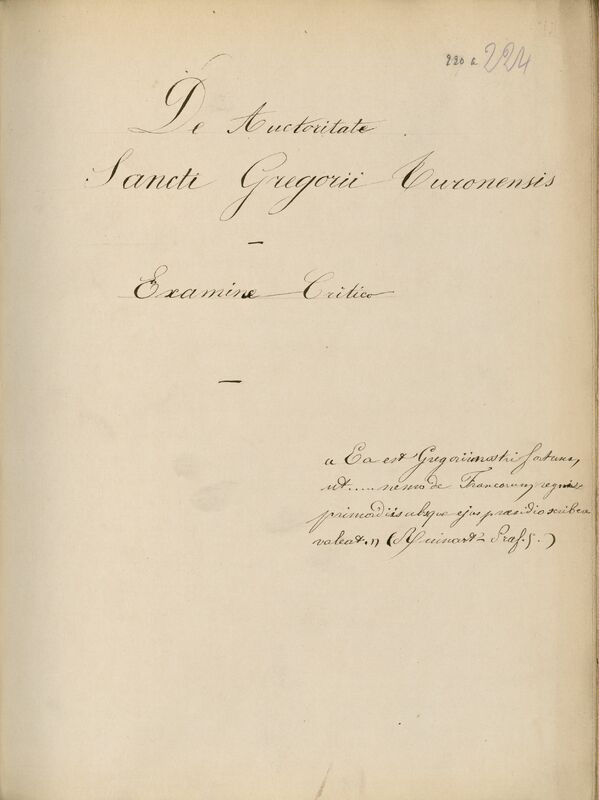 220 a 224
De Auctoritate
Sancti Gregorii Turonensis
Examine Critico
« Ea est Gregorii nostri fortuna,
ut .... nemo de Francorum regni
primordiis absque ejus præsidio scribere
valeat. » (Ruinart - Præf. §. )